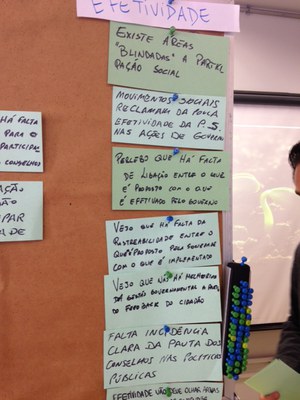 EFETIVIDADE
EXISTE ÁREAS
"BLINDADAS" A PARTICI
PAÇÃO SOCIAL
MOVIMENTOS SOCIAIS
RECLAMAM DA POUCA
EFETIVIDADE DA P.S.
NAS AÇÕES DE GOVERNO
PERCEBO QUE HÁ FALTA
DE LIGAÇÃO ENTRE O QUE
É PROPOSTO COM O QUE
É EFETIVADO PELO GOVERNO
VEJO QUE HÁ FALTA DA
ENTRE O
QUE É PROPOSTO PELA SOCIEDADE
COM O QUE É IMPLEMENTADO
VEJO QUE NÃO HÁ MELHORIA
DA GESTÃO GOVERNAMENTAL A PARTIR
DO FEEDBACK DO CIDADÃO
FALTA INCIDÊNCIA
CLARA DA PAUTA DOS
CONSELHOS NAS POLÍTICAS
PÚBLICAS
EFETIVIDADE
HÁ FALTA
PARA O
PARTICIPAR
CONSELHOS
AÇÃO
ÃO
IPAR
ADE